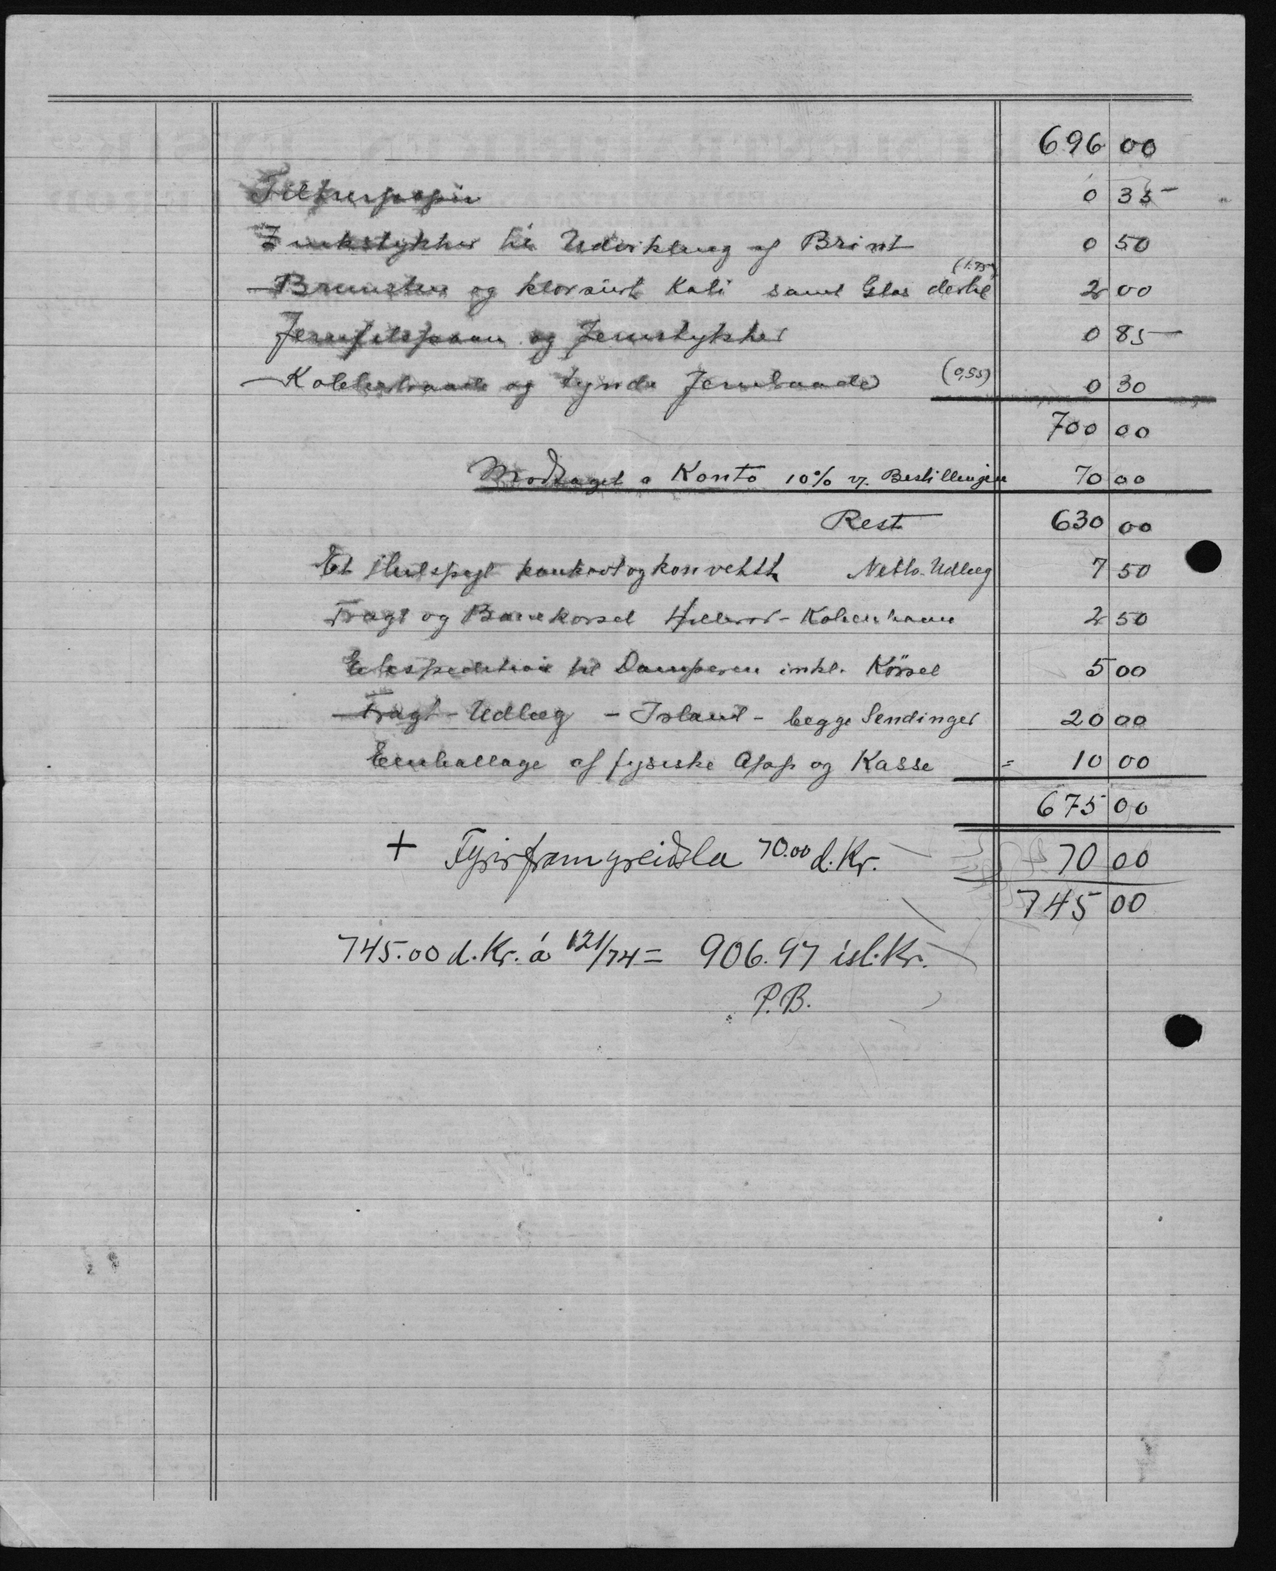 696 00
Filtrerpapir 0 35
Zinkstykker til Udvikling af Brint 0 50
(1.75)
Brunsten og klorsurt Kali samt Glas dertil 2 00
Jernfilspaan og Jernstykker 0 85
Kobbertraade og tynde Jerntraade (0,55) 0 30
700 00
Modtaget a Konto 10% v. Bestillingen 70 00
Rest 630 00
Et Hulspejl konkavt og konvekst Netto-Udlæg 7 50
Fragt og Banekørsel Hillerød - København 2 50
Ekspedition til Damperen inkl. Kørsel 5 00
Fragt-Udlæg - Island - begge Sendinger 20 00
Emballage af fysiske App og Kasse = 10 00
675 00
+ Fyrirframgreiðsla 70.00 d. Kr. 70 00
745 00
745.00 d. Kr. á 121/74 = 906.97 ísl. Kr.
P.B.